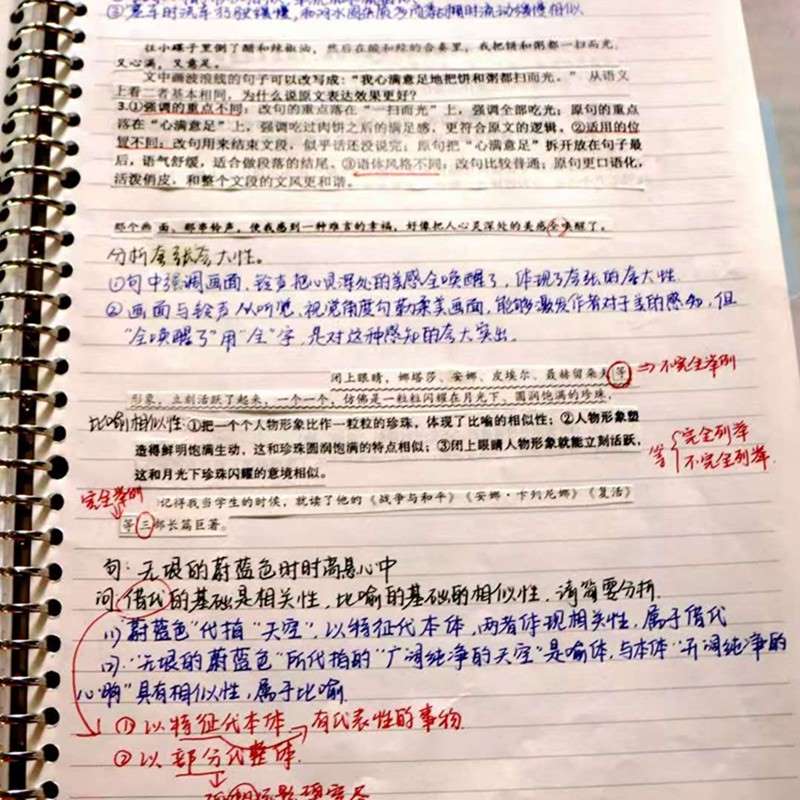 ②塞车时汽车
往小碟子里倒了醋和辣椒油，然后在酸和辣的合奏里，我把饼和粥都一扫而光，
又心满，又意足。
文中画波浪线的句子可以改写成：“我心满意足地把饼和粥都扫而光。”从语义
上看二者基本相同，为什么说原文表达效果更好？
3.①强调的重点不同：改句的重点落在“一扫而光”上，强调全部吃光；原句的重点
落在“心满意足”上，强调吃过肉饼之后的满足感，更符合原文的逻辑。②适用的位
置不同：改句用来结束文段，似乎话还没说完；原句把“心满意足”拆开放在句子最
后，语气舒缓，适合做段落的结尾。③语体风格不同：改句比较普通；原句更口语化，
活泼俏皮，和整个文段的文风更和谐。
那个画面、那串铃声，使我感到一种难言的幸福，好像把人心灵深处的美感全唤醒了。
分析夸张夸大性。
①句中强调画面、铃声把心灵深处的美感全唤醒了，体现了夸张的夸大性
②画面与铃声从听觉、视觉角度勾勒柔美画面，能够激发作者对于美的感知，但
“全唤醒了”用“全”字，是对这种感知的夸大突出。
闭上眼睛，娜塔莎、安娜、皮埃尔、聂赫留朵夫等 ⇒不完全举例
形象，立刻活跃了起来，一个一个，仿佛是一粒粒闪耀在月光下，圆润饱满的珍珠。
比喻相似性：①把一个个人物形象比作一粒粒的珍珠，体现了比喻的相似性；②人物形象塑
造得鲜明饱满生动，这和珍珠圆润饱满的特点相似；③闭上眼睛人物形象就能立刻活跃，
这和月光下珍珠闪耀的意境相似。
等{完全列举
不完全列举
完全举例
记得我当学生的时候，就读了他的《战争与和平》《安娜·卡列尼娜》《复活》
等三部长篇巨著。
句：无垠的蔚蓝色时时高悬心中
问：借代的基础是相关性，比喻的基础的相似性，请简要分析.
(1)“蔚蓝色”代指“天空”，以特征代本体，两者体现相关性，属于借代
(2)“无垠的蔚蓝色”所代指的“广阔纯净的天空”是喻体，与本体“开阔纯净的
心响”具有相似性，属于比喻.
①以特征代本体→有代表性的事物
②以部分代整体.